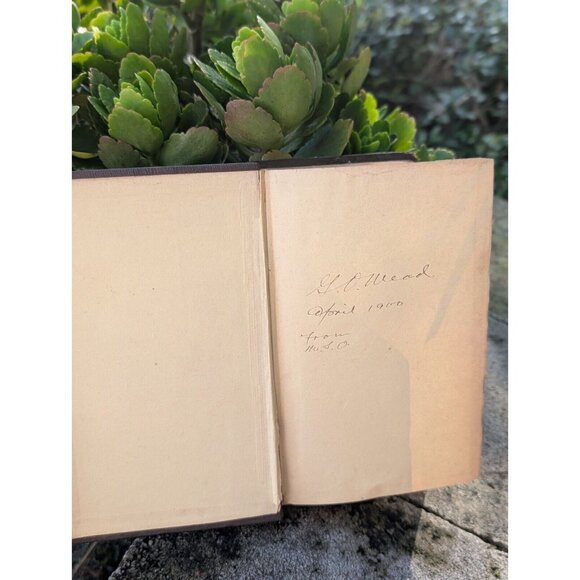 G. C. Mead
April 1900
from
M. L. O.